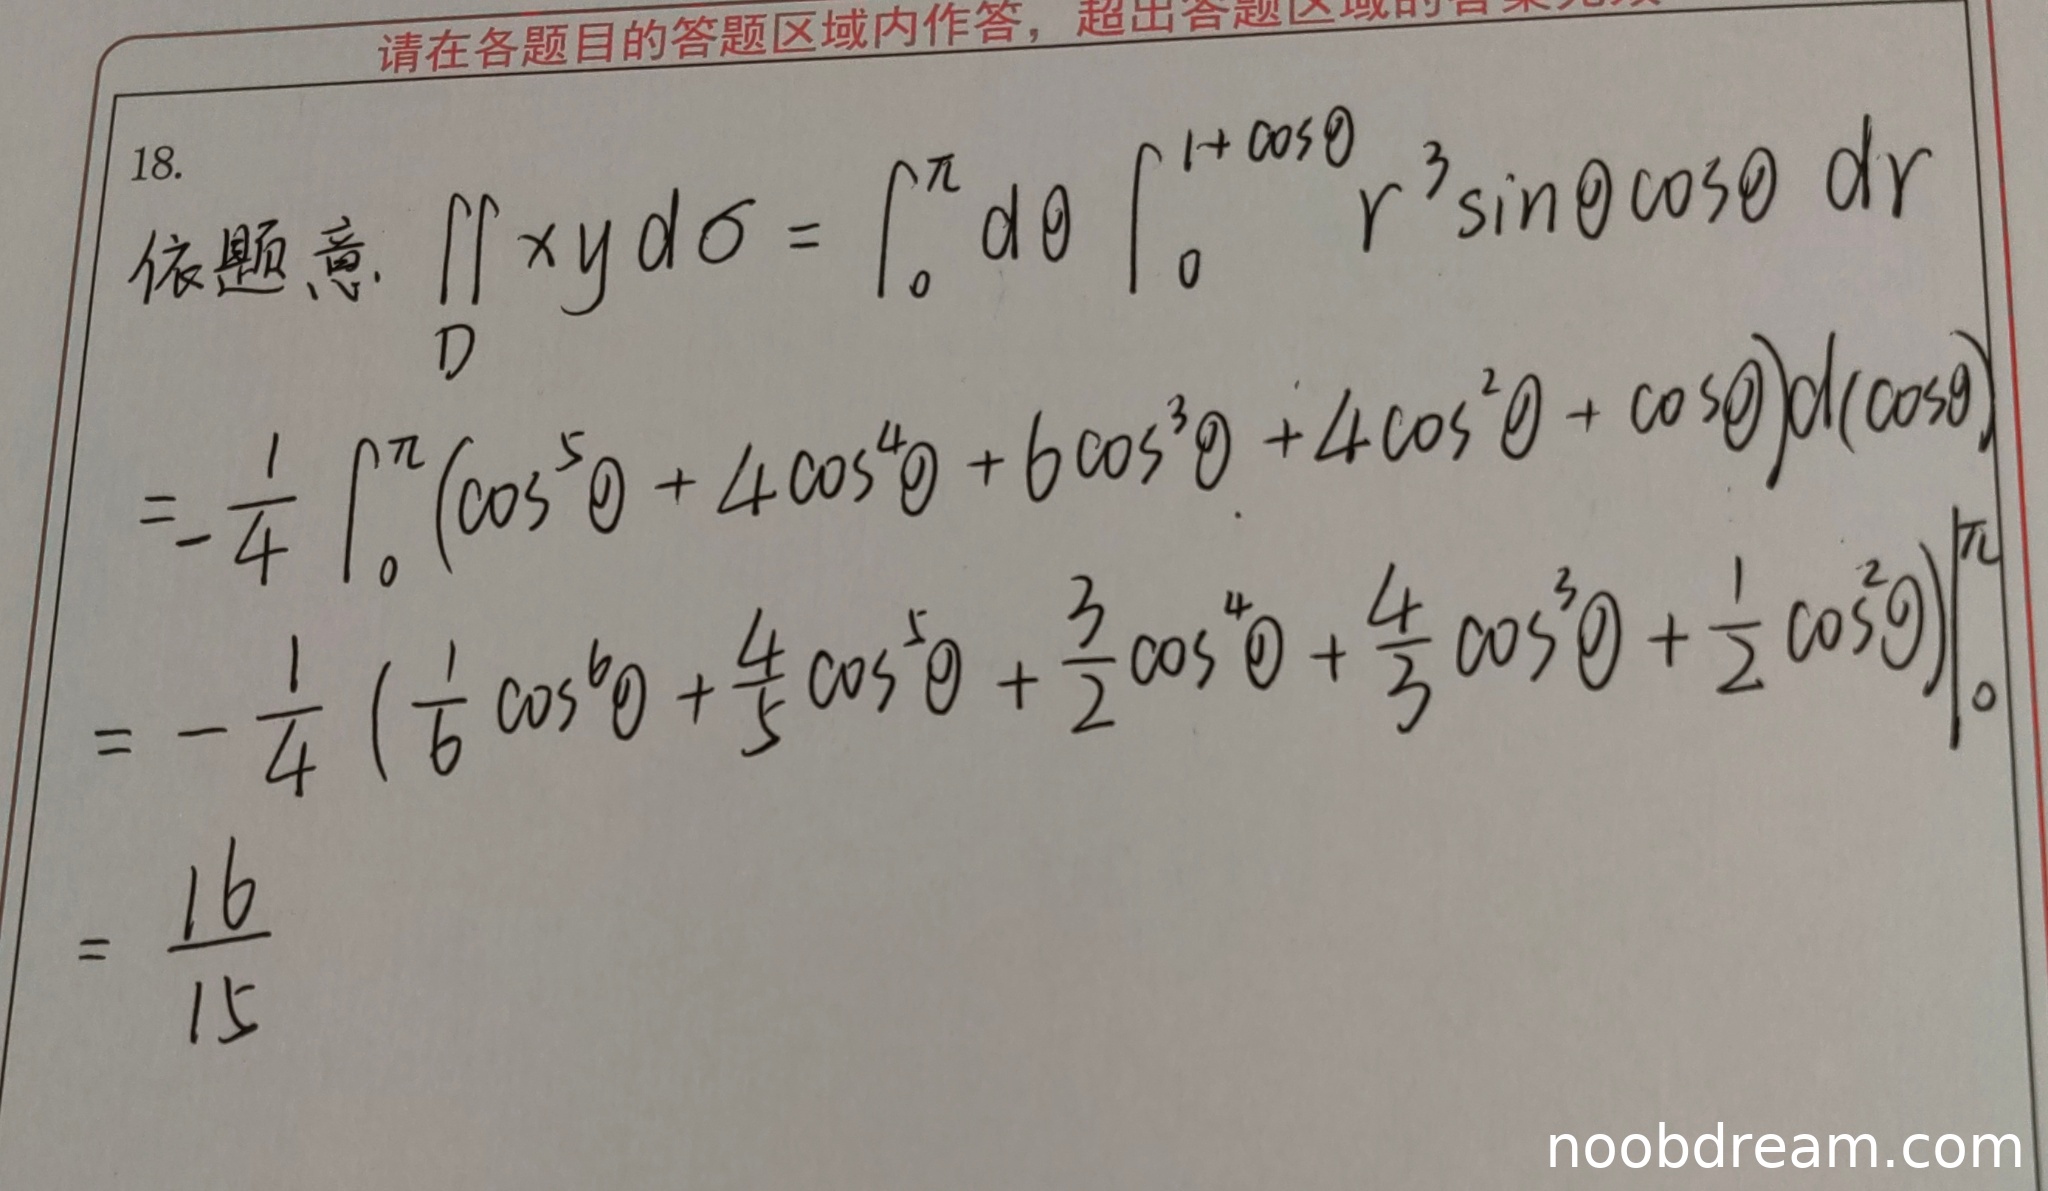 请在各题目的答题区域内作答，超出答题区域的答案无效
18.
依题意. ∬_D xydσ = ∫_0^π dθ ∫_0^{1+cosθ} r³sinθcosθ dr
= -1/4 ∫_0^π (cos⁵θ + 4cos⁴θ + 6cos³θ + 4cos²θ + cosθ)d(cosθ)
= -1/4 (1/6 cos⁶θ + 4/5 cos⁵θ + 3/2 cos⁴θ + 4/3 cos³θ + 1/2 cos²θ)|_0^π
= 16/15
noobdream.com